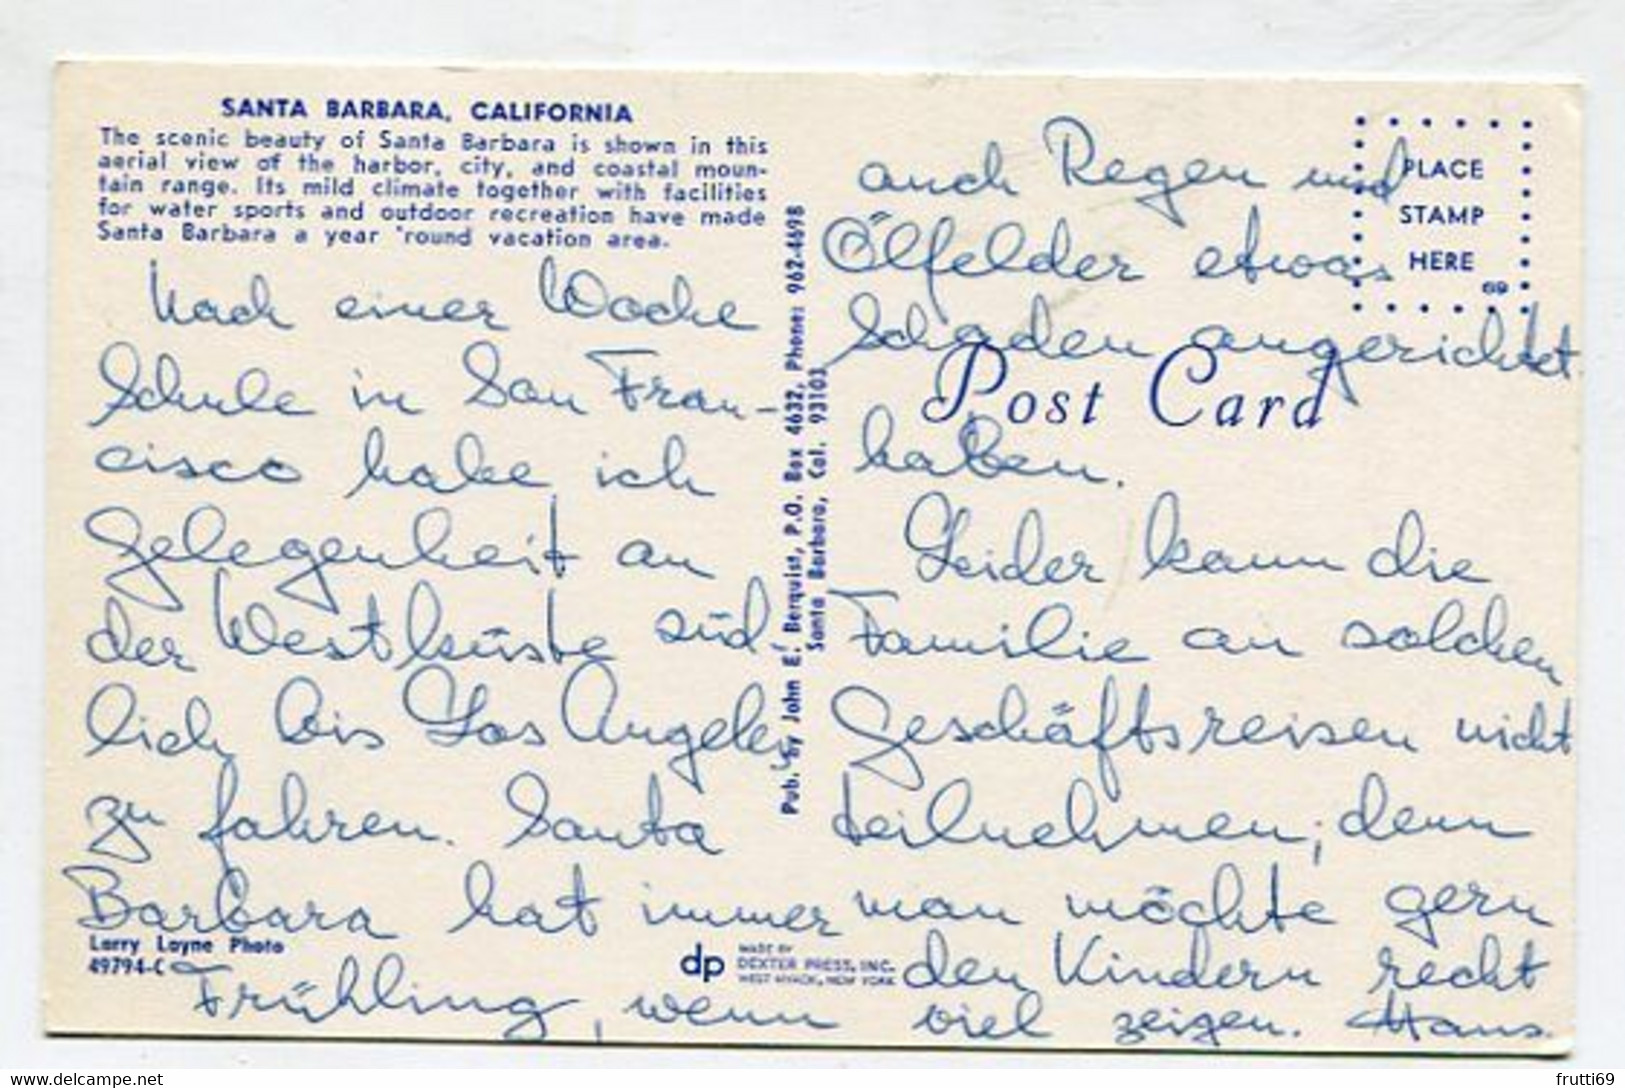 SANTA BARBARA, CALIFORNIA
The scenic beauty of Santa Barbara is shown in this
aerial view of the harbor, city, and coastal moun-
tain range. Its mild climate together with facilities
for water sports and outdoor recreation have made
Santa Barbara a year 'round vacation area.
Nach einer Woche
Schule in San Fran-
cisco habe ich
Gelegenheit an
der Westküste süd
lich bis Los Angeles
zu fahren. Santa
Barbara hat immer
Frühling, wenn
Larry Layne Photo
49794-C
Pub. by John E. Berquist, P.O. Box 4632, Phone: 962-4698
Santa Barbara, Cal. 93103
dp
MADE BY
DEXTER PRESS, INC.
WEST NYACK, NEW YORK
PLACE
STAMP
HERE
69
Post Card
auch Regen und
Ölfelder etwas
Schaden angerichtet
haben.
Leider kann die
Familie an solchen
Geschäftsreisen nicht
teilnehmen, denn
man möchte gern
den Kindern recht
viel zeigen. Hans.
www.delcampe.net
frutti69